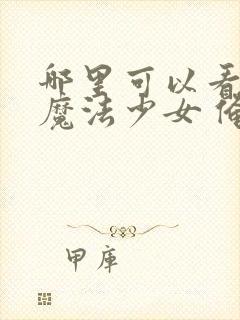 哪里可以看
魔法少女 俺
甲库